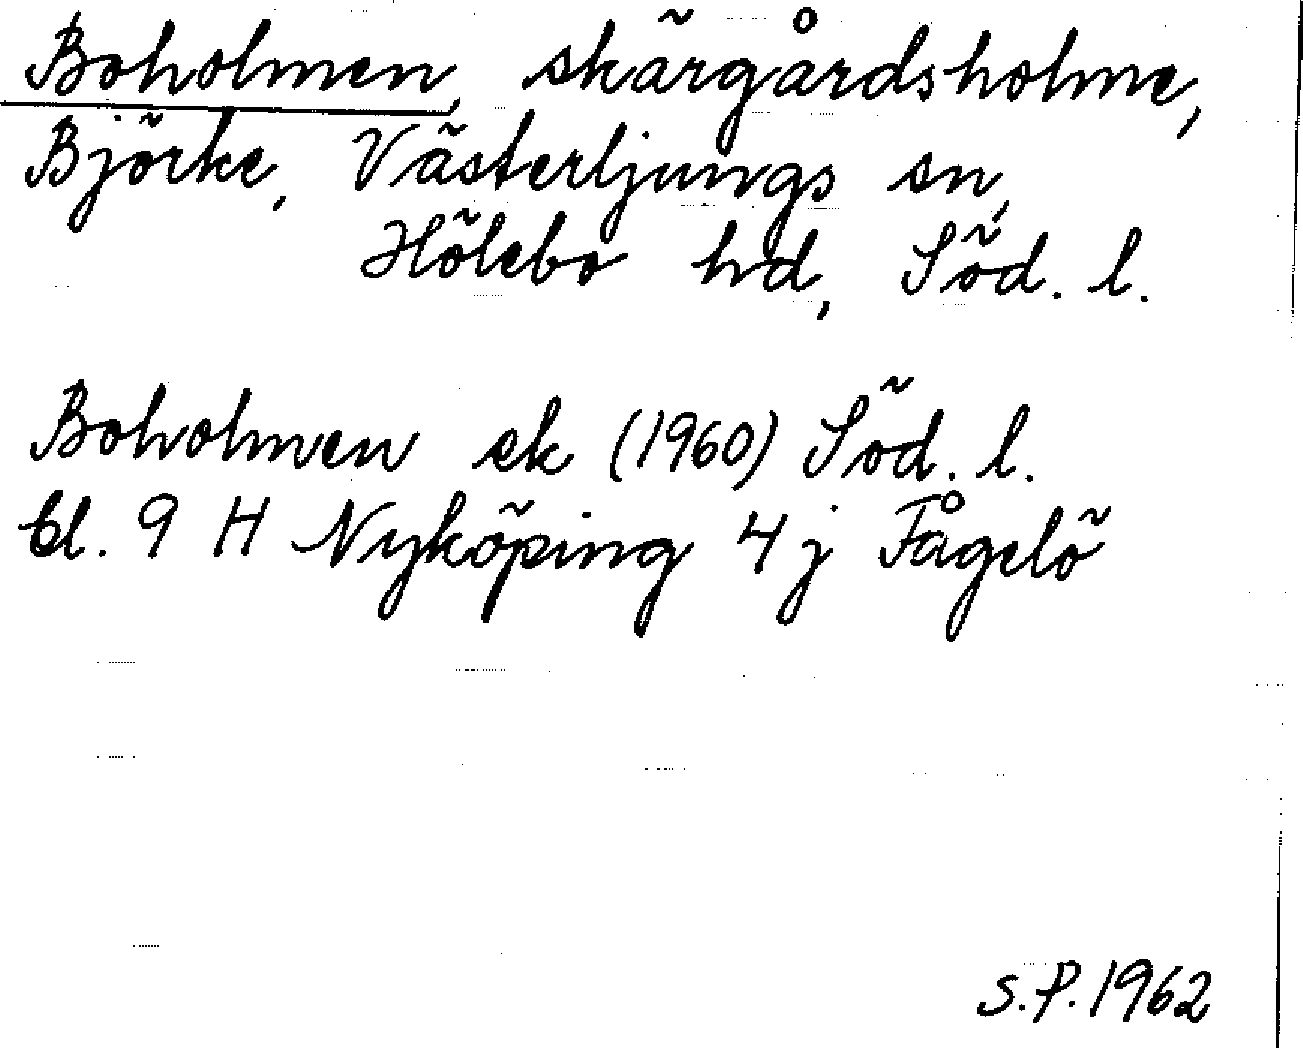 Boholmen, skärgårdsholme,
Björke, Västerljungs sn,
Hölebo hd, Söd. l.
Boholmen ek (1960) Söd. l.
bl. 9 H Nyköping 4 j Fågelö
S.P. 1962